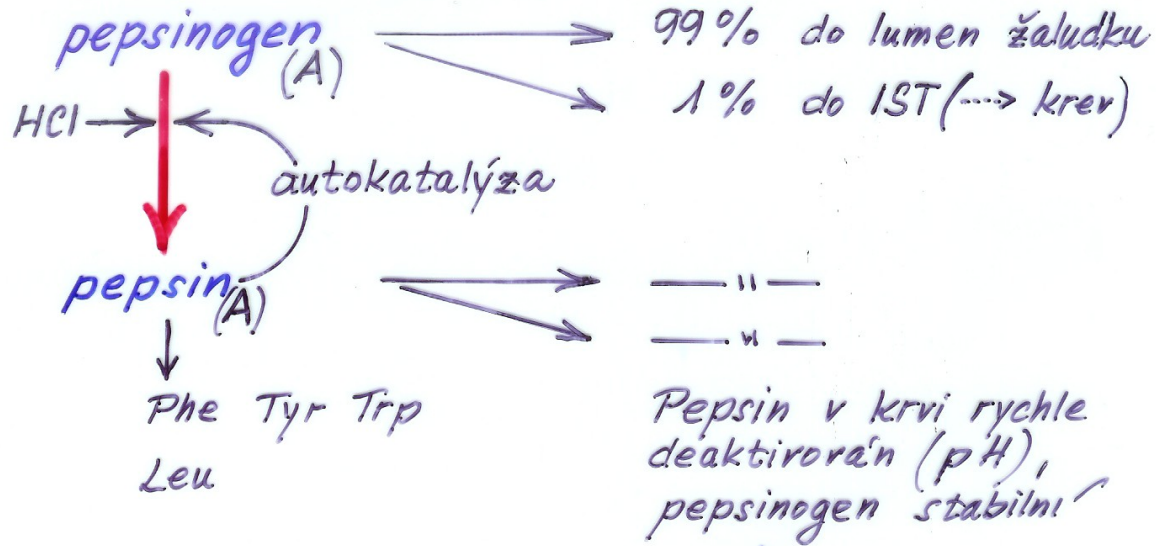 pepsinogen (A) 99% do lumen žaludku
1% do IST (----> krev)
HCl
autokatalýza
pepsin (A) —— " ——
—— " ——
Phe Tyr Trp
Leu
Pepsin v krvi rychle
deaktivován (pH),
pepsinogen stabilní